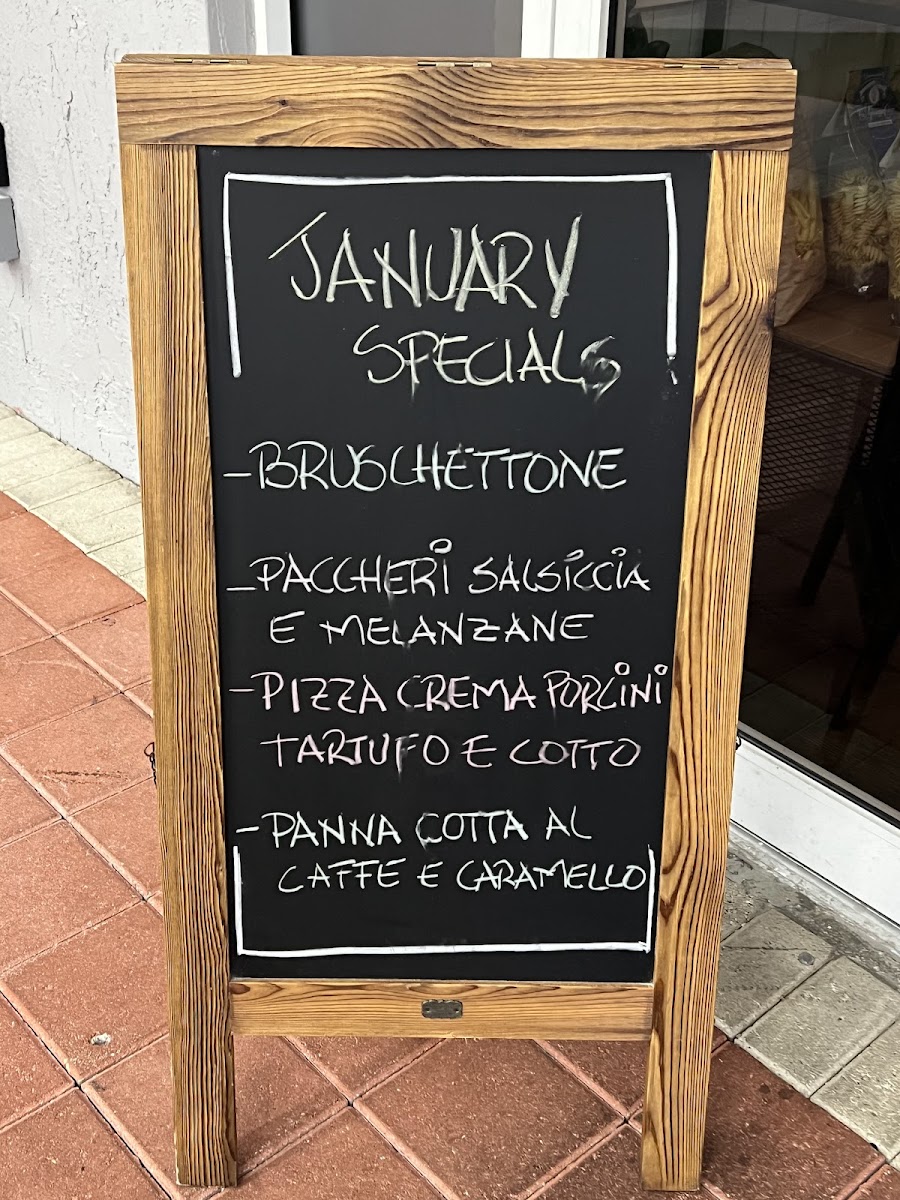 JANUARY
SPECIALS
-BRUSCHETTONE
-PACCHERI SALSICCIA
E MELANZANE
-PIZZA CREMA PORCINI
TARTUFO E COTTO
-PANNA COTTA AL
CAFFE E CARAMELLO